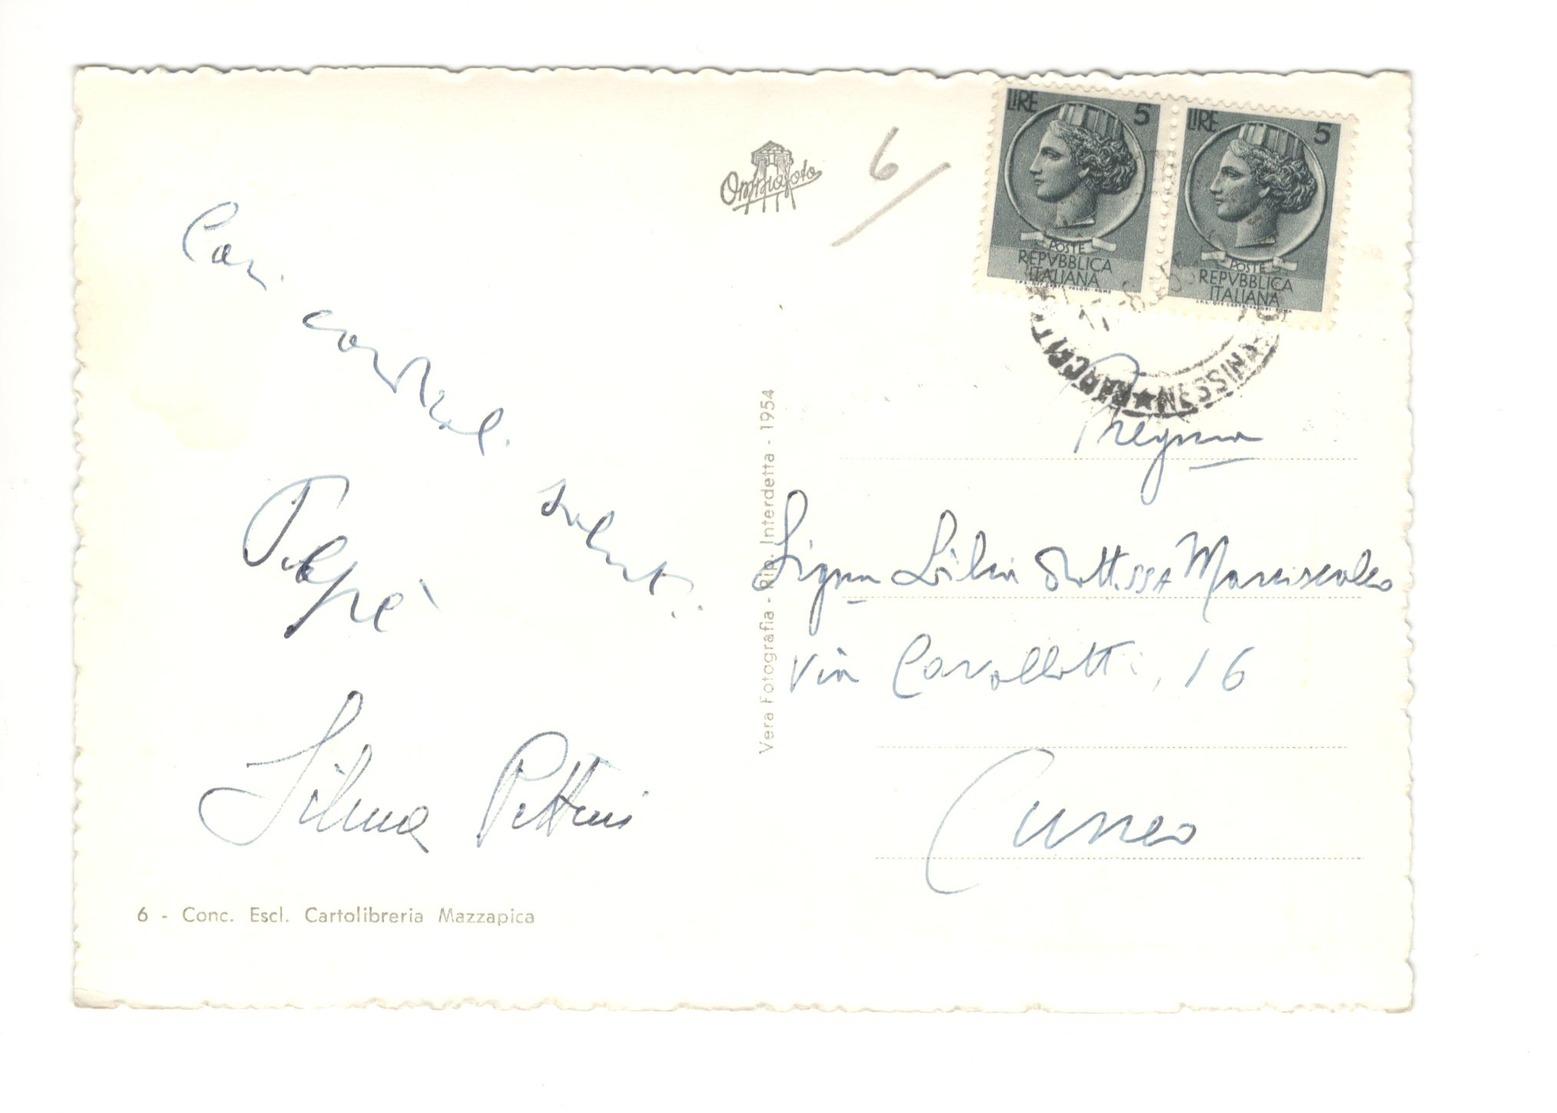 Omniafoto
6
LIRE 5
POSTE
REPVBBLICA
ITALIANA
LIRE 5
POSTE
REPVBBLICA
ITALIANA
Cari
cordiali
saluti
Silvia
6 - Conc. Escl. Cartolibreria Mazzapica
Vera Fotografia - Rip. Interdetta - 1954
Lilia Dott.ssa
Via Cavallotti, 16
Cuneo